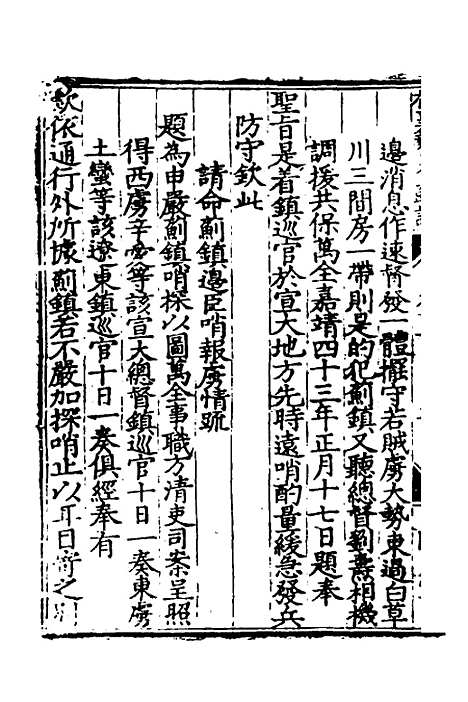 邊消息作速督發一體擺守若賊虜大勢東過白草
川三間房一帶則是的犯薊鎮又聽總督劉燾相機
調援共保萬全嘉靖四十三年正月十七日題奉
聖旨是着鎮巡官於宣大地方先時遠哨酌量緩急發兵
防守欽此
請命薊鎮邊臣哨報虜情疏
題為申嚴薊鎮哨探以圖萬全事職方清吏司案呈照
得西虜辛愛等該宣大總督鎮巡官十日一奏東虜
土蠻等該遼東鎮巡官十日一奏俱經奉有
欽依通行外所據薊鎮若不嚴加探哨止以耳目寄之